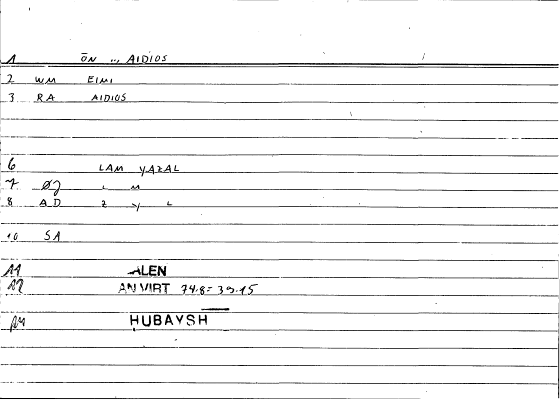 1 ŌN .., AIDIOS
2 WM EIMI
3 RA AIDIOS
6 LAM YAZAL
7 ØJ L M
8 AD Z Y L
10 SA
11 ALEN
12 AN VIRT 74.8= 39.15
14 HUBAYSH